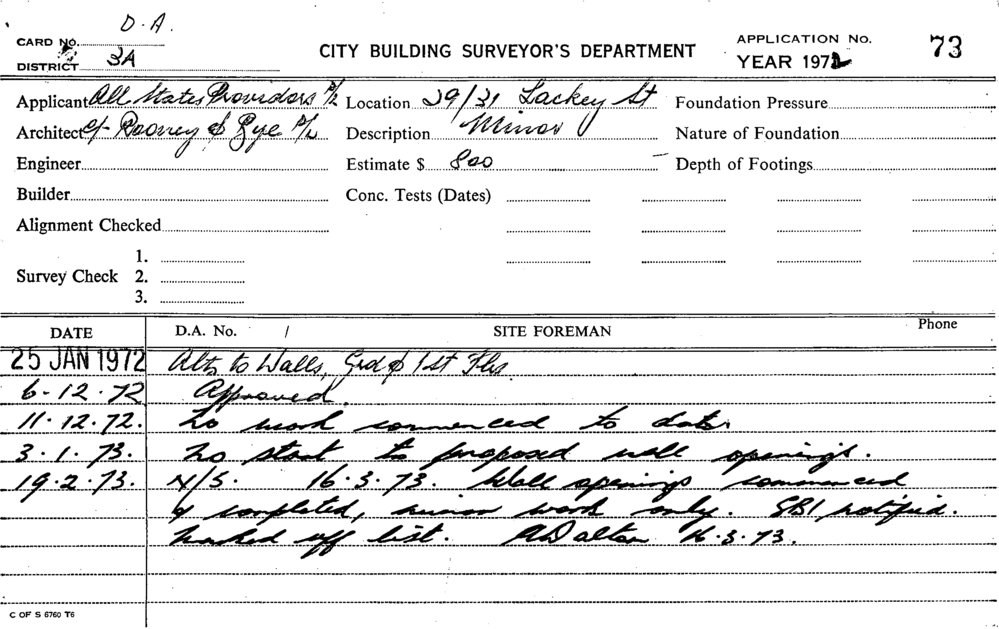 D.A.
CARD No.
DISTRICT 3A
CITY BUILDING SURVEYOR'S DEPARTMENT
APPLICATION No. 73
YEAR 1972
Applicant All States Providors P/L Location 29/31 Lackey St Foundation Pressure
Architect Rooney & Bye P/L Description Minor Nature of Foundation
Engineer Estimate $ 800 Depth of Footings
Builder Conc. Tests (Dates)
Alignment Checked
1.
Survey Check 2.
3.
DATE D.A. No. / SITE FOREMAN Phone
25 JAN 1972 Alts to Walls, Grd & 1st Flrs.
6-12.72 Approved.
11.12.72. No work commenced to date.
3.1.73. No start to proposed wall openings.
19.2.73. N/S. 16.3.73. Wall openings commenced
& completed, minor work only. SBI notified.
Marked off list. ADalton 16.3.73.
C OF S 6760 T6